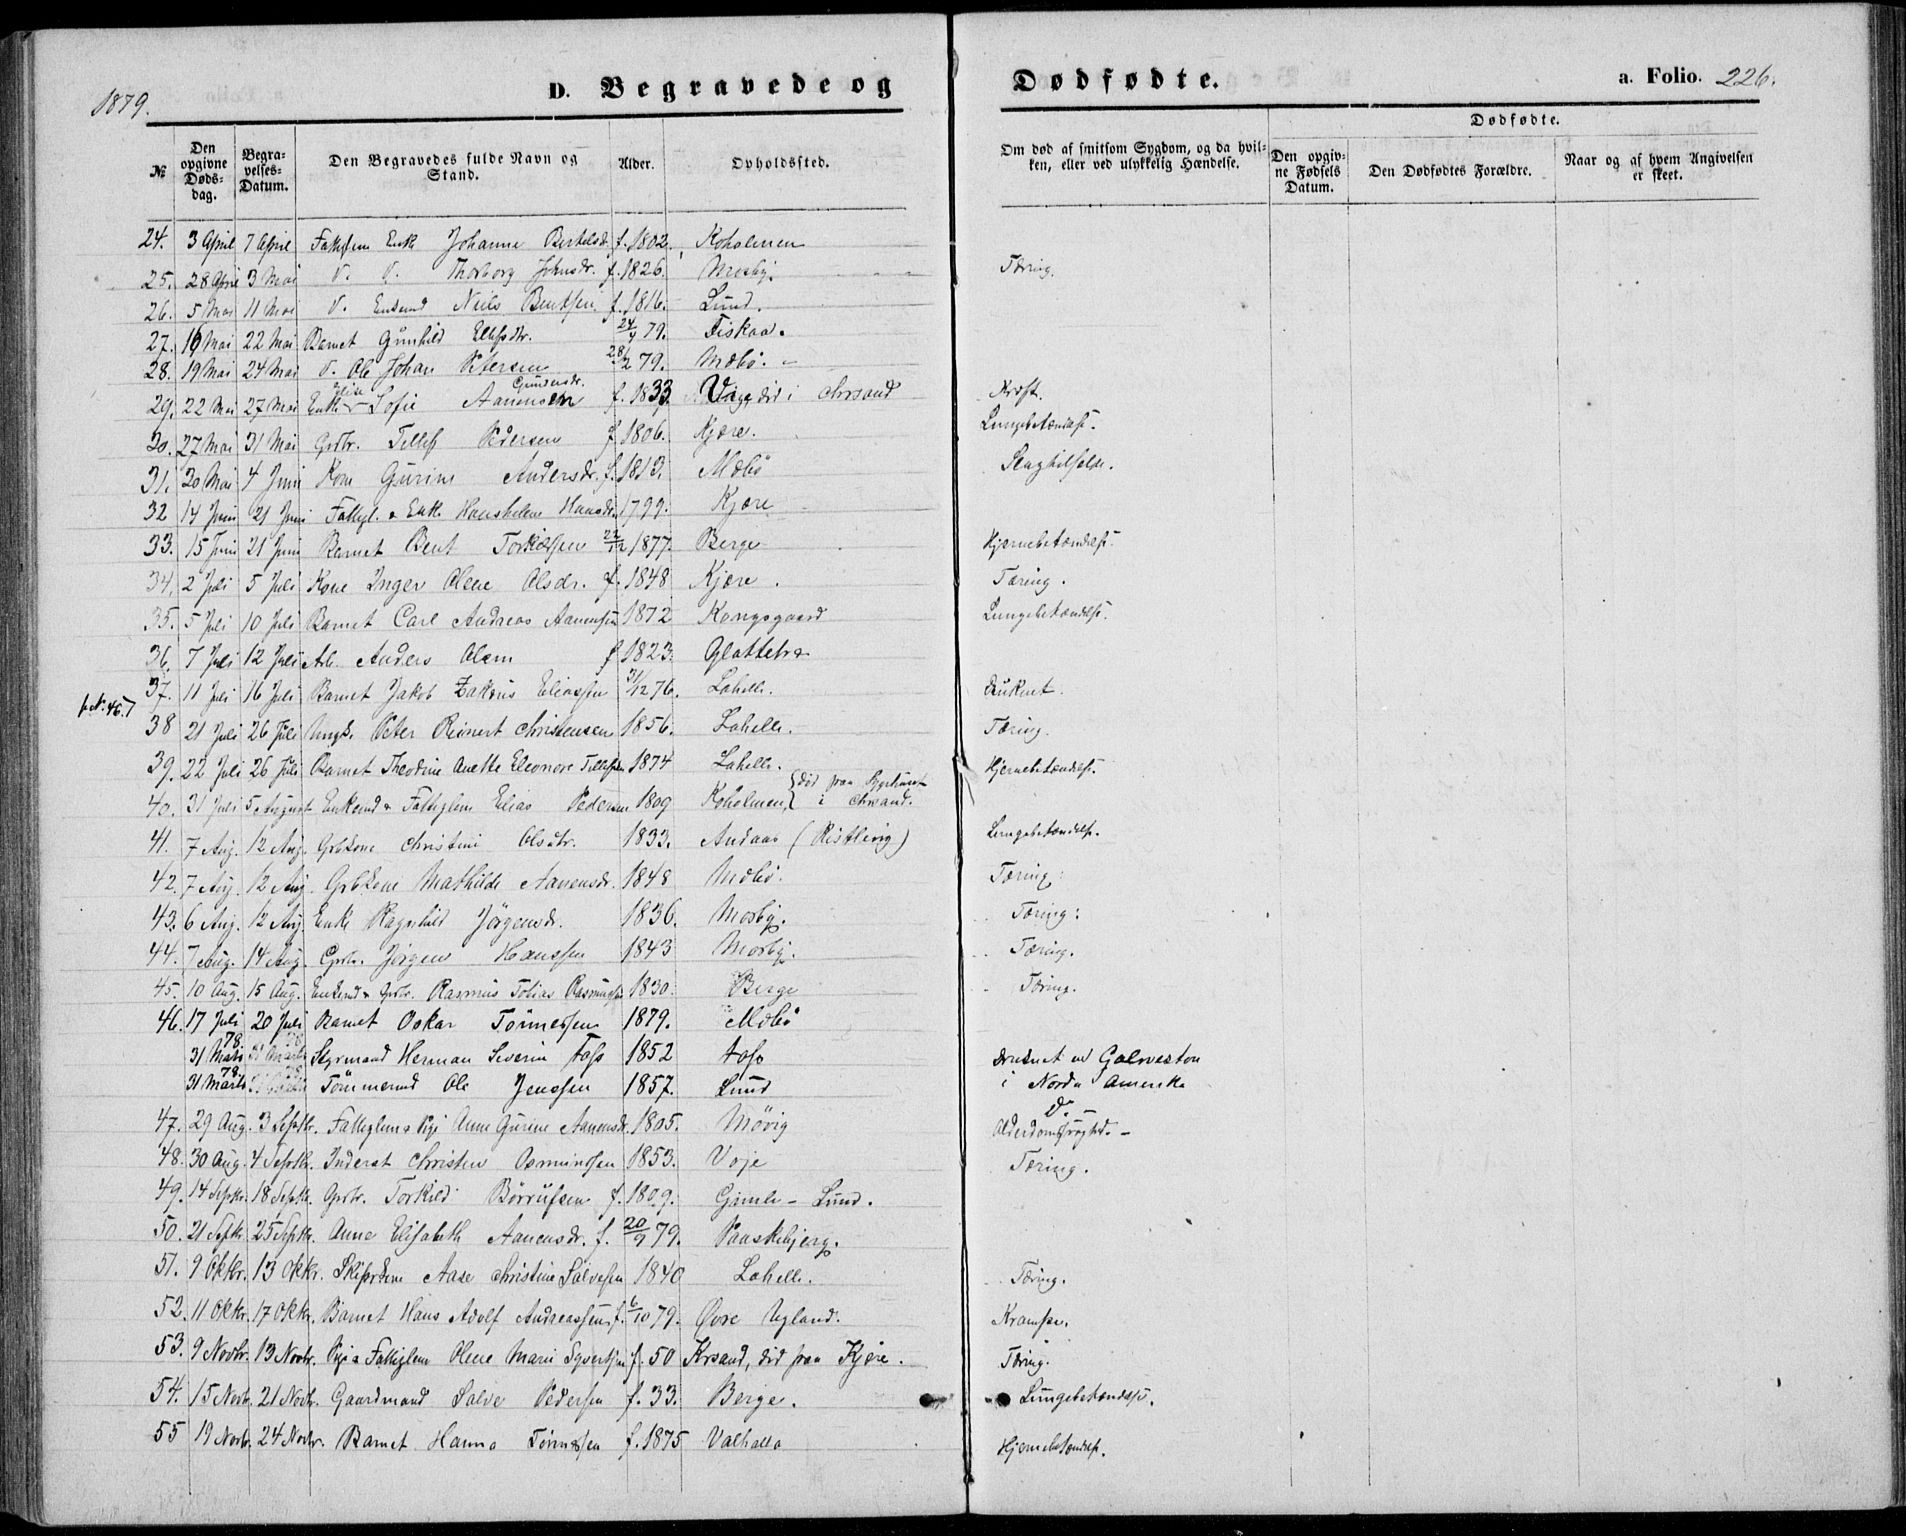 1879.
D. Begravede og Dødfødte.
a. Folio. 226.
№
Den opgivne Døds-dag.
Begra-velses-Datum.
Den Begravedes fulde Navn og Stand.
Alder.
Opholdssted.
Om død af smitsom Sygdom, og da hvil-ken, eller ved ulykkelig Hændelse.
Dødfødte.
Den opgiv-ne Fødsels Datum.
Den Dødfødtes Forældre.
Naar og af hvem Angivelsen er skeet.
24. 3 April 7 April Enk Johanne Bertelsdr. f. 1802. Koholmen
25. 28 April 3 Mai D. D. Thorborg Johnsdr. f. 1826. Mosby. Tæring.
26. 5 Mai 11 Mai D. Enkemd Neils Bentsen f. 1816. Lund.
27. 16 Mai 22 Mai Barnet Gunhild Ellefsdr. 24/4 79. Fiskaa.
28. 19 Mai 24 Mai D. Ole Johan Petersen 28/2 79. Mæbö.
29. 22 Mai 27 Mai Enke Elise Sofie Aanensen Gundersdr. f. 1833. Vige, död i Chrsand Kræft.
30. 27 Mai 31 Mai Grdbr. Tellef Pedersen f 1806. Kjære. Lungebetændelse.
31. 30 Mai 4 Juni Kone Gurine Andersdr. f. 1813. Mæbö Slagtilfælde.
32 14 Juni 21 Juni Fattigl. & Enk. Hanshelene Hansdr. 1799. Kjære
33. 15 Juni 21 Juni Barnet Bent Torkildsen 22/12 1877. Berge Hjernebetændelse.
34. 2 Juli 5 Juli Kone Inger Olene Olsdr. f. 1848 Kjære. Tæring.
35. 5 Juli 10 Juli Barnet Carl Andreas Aanensen 1872 Kongsgaard Lungebetændelse.
36. 7 Juli 12 Juli Arb. Anders Olsen f 1823. Glattetræ
37. 11 Juli 16 Juli Barnet Jakob Zakarius Eliassen 31/12 76. Lahelle. Druknet.
f. N. 46.
38 21 Juli 26 Juli Ungk. Peter Reinert Christensen 1856. Lahelle. Tæring.
39. 22 Juli 26 Juli Barnet Theodine Anette Eleonore Tellefsen 1874 Lahelle. Hjernebetændelse.
40. 31 Juli 5 August Enkemd & Fattiglem Elias Pedersen 1809 Koholmen, {död paa Sygehuset i Chrsand.
41. 7 Aug. 12 Aug. Grbkone Christine Olsdtr. 1833. Andaas (Ristlevig) Lungebetændelse.
42. 7 Aug. 12 Aug. Grbkone Mathilde Aanensdr. 1848 Mæbö. Tæring.
43. 6 Aug. 12 Aug. Enke Ragnhild Jörgensdr. 1836. Mosby. Tæring.
44. 7 Aug. 14 Aug. Grbr. Jörgen Hanssen 1843 Mosby. Tæring.
45. 10 Aug. 15 Aug. Enkemd & Grbr. Rasmus Tobias Rasmussen 1830. Berge Tæring.
46. 17 Juli 20 Juli Barnet Oskar Tönnessen 1879. Mæbö
31 Marts 78. Styrmand Herman Severin Foss 1852 Foss druknet ved Galveston
31 Marts 78. Tömmermd Ole Jenssen 1857. Lund i Norda Amerika
D. –
47. 29 Aug. 3 Septbr. Fattiglem & Pige Anne Gurine Aanensdr. 1805. Mövig Alderdomssvaghed. –
48. 30 Aug. 4 Septbr. Inderst Christen Osmundsen 1853. Voje Tæring.
49. 14 Septbr. 18 Septbr. Grbr. Torkild Börrufsen f. 1809. Gimle – Lund.
50. 21 Septbr. 25 Septbr. Anne Elisabeth Aanensdr. f. 20/9 79. Paaskebjerg.
51. 9 Oktbr. 13 Oktbr. Skipperkone Aase Christine Salvesen 1840 Lahelle. Tæring.
52. 11 Oktbr. 17 Oktbr. Barnet Hans Adolf Andreassen f. 6/10 79. Øvre Ugland. Krampe.
53. 9 Novbr. 13 Novbr. Pige & Fattiglem Olene Marie Syvertsen f. 50 Krsand, död paa Kjære. Tæring.
54. 15 Novbr. 21 Novbr. Gaardmand Salve Pedersen f. 33. Berge. Lungebetændelse.
55 19 Novbr. 24 Novbr. Barnet Hanna Tönnessen f. 1875 Valhalla Hjernebetændelse.